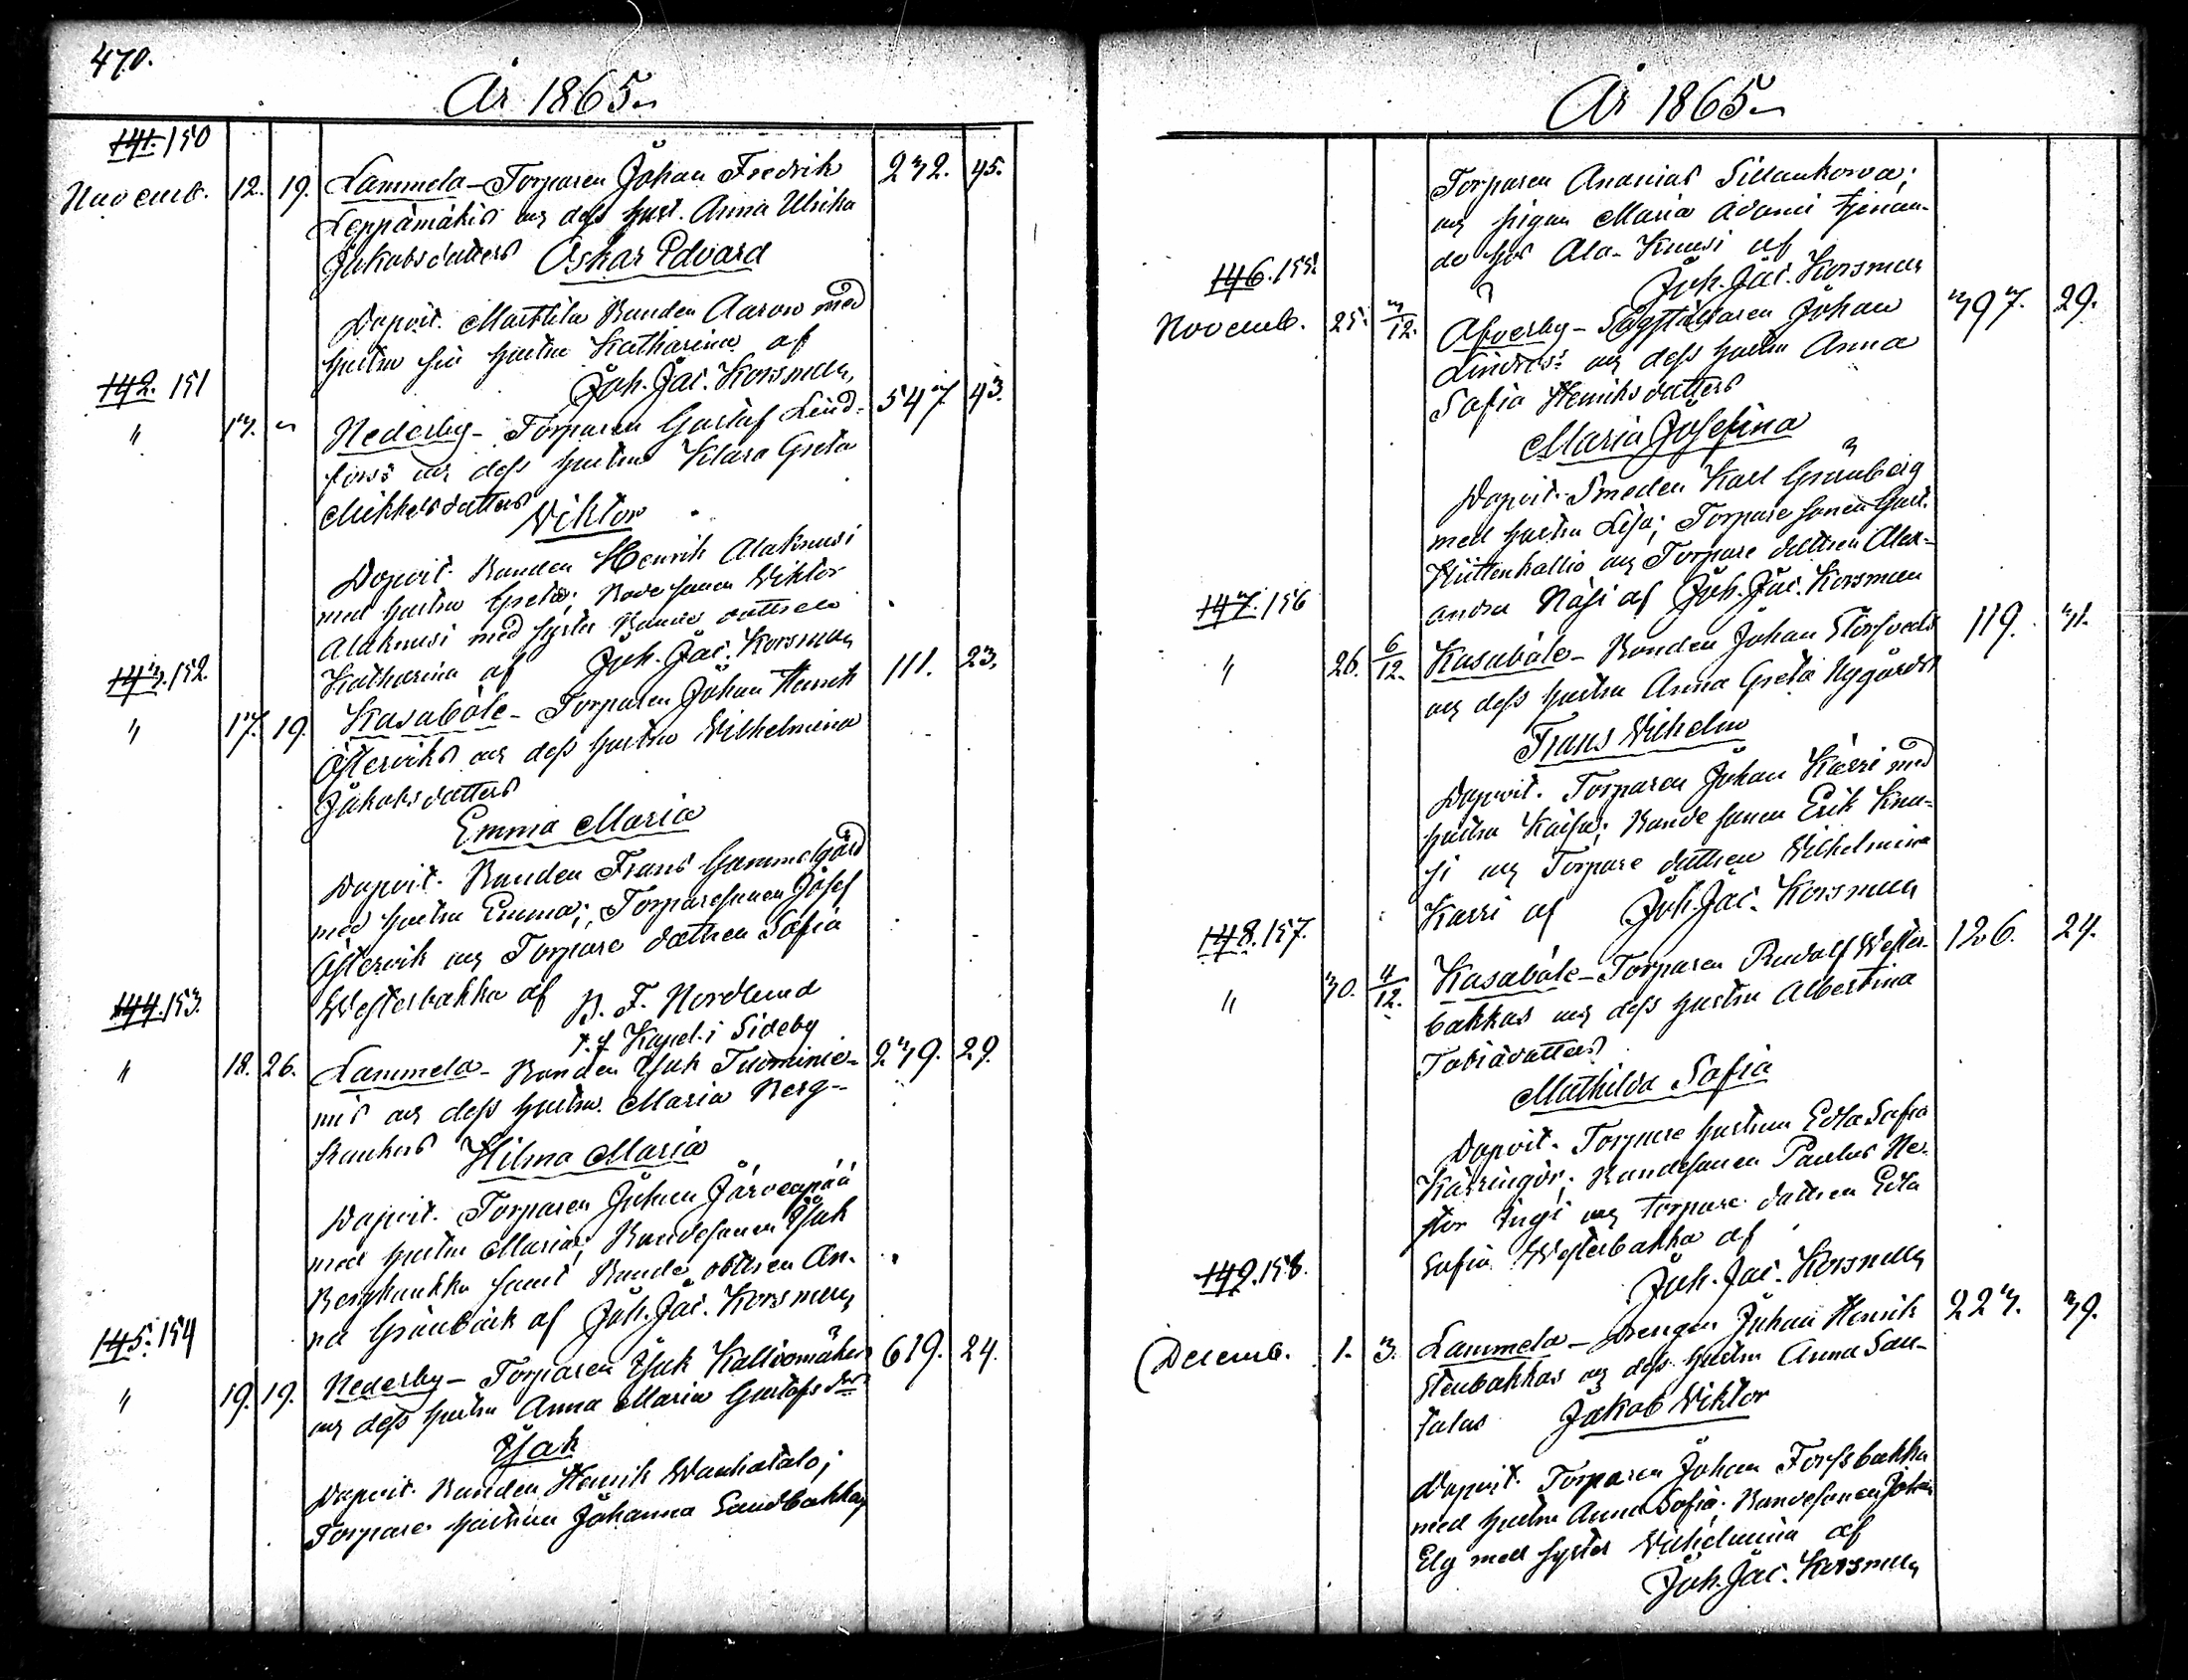 470.
År 1865
141. 150
Novemb. 12. 19. Lammela – Torparen Johan Fredrik 232. 45.
Leppämäkis och dess hust. Anna Ulrika
Jakobsdotters Oskar Edvard
Dopvit. Matthila Bonden Aaron med
hustru Katharina af
Joh. Jac. Korsman
142. 151
" 17. Nederby – Torparen Gustaf Lind- 547. 43.
fors's och dess hustru Klara Greta
Mikkelsdotters Viktor
Dopvit. Bonden Henrik Alaknusi
med hustru Greta; Bondesonen Viktor
Alaknusi med syster Bonde dottren
Katharina af Joh. Jac. Korsman
143. 152.
" 17. 19. Kasaböle – Torparen Johan Henrik 111. 23.
Österviks och dess hustru Wilhelmina
Jakobsdotters
Emma Maria
Dopvit. Bonden Frans Gammelgård
med hustru Emma; Torparesonen Josef
Östervik och Torpare dottren Sofia
Westerbakka af P. F. Nordlund
t. f. Kapel. i Sideby
144. 153.
" 18. 26. Lammela – Bonden Isak Tuominie- 239. 29.
mis och dess hustru Maria Berg-
kaukas Hilma Maria
Dopvit. Torparen Johan Järvenpää
med hustru Maria; Bondesonen Isak
Bergkaukka samt Bonde dottren An-
na Grönback af Joh. Jac. Korsman
145. 154
" 19. 19. Nederby – Torparen Isak Kalliomäkis 619. 24.
och dess hustru Anna Maria Gustafsdr
Isak
Dopvit. Bonden Henrik Wanhatalo;
Torpare hustrun Johanna Sandbakka
År 1865
Torparen Ananias Sillankorva;
och pigan Maria Adami tjenan-
de hos Ala-Knusi af
Joh. Jac. Korsman
146. 155.
Novemb. 25. 3/12. Åfverby – Johan 397. 29.
Lindros's och dess hustru Anna
Sofia Henriksdotters
Maria Josefina
Dopvit. Smeden Karl Grönberg
med hustru Lisa; Torpare sonen Gust.
Hüttenkallio och Torpare dottren Alex-
andra Näsi af Joh. Jac. Korsman
147. 156
" 26. 6/12. Kasaböle – Bonden Johan Storsveds 119. 31.
och dess hustru Anna Greta Nygårds
Frans Wilhelm
Dopvit. Torparen Johan Karri med
hustru Kaisa; Bonde sonen Erik Knu-
si och Torpare dottren Wilhelmina
Karri af Joh. Jac. Korsman
148. 157.
" 30. 4/12. Kasaböle – Torparen Rudolf Wester- 126. 24.
bakkas och dess hustru Albertina
Tobiädotters
Mathilda Sofia
Dopvit. Torpare hustrun Edla Sofia
Bondesonen Paulus Ne-
stor och torpare dottren Edla
Sofia Westerbakka af
Joh. Jac. Korsman
149. 158.
Decemb. 1. 3. Lammela – Drengen Johan Henrik 223. 39.
Stenbakkas och dess hustru Anna San-
talas Jakob Viktor
Dopvit. Torparen Johan Forssbakka
med hustru Anna Sofia; Bondesonen Johan
Elg med syster Wilhelmina af
Joh. Jac. Korsman